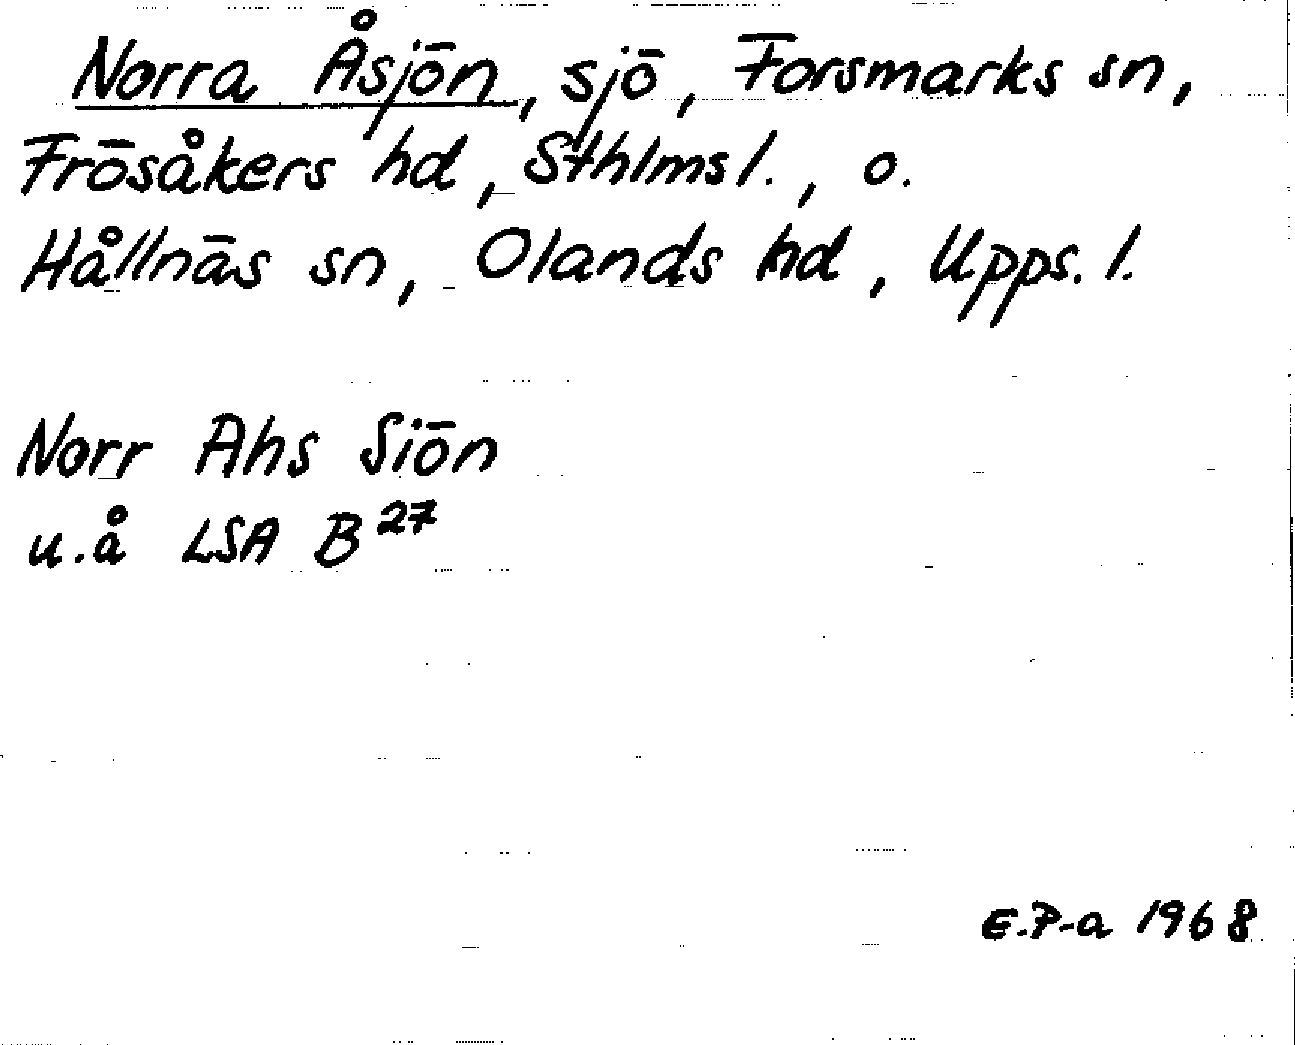 Norra Åsjön, sjö, Forsmarks sn,
Frösåkers hd, Sthlms l., o.
Hållnäs sn, Olands hd, Upps. l.
Norr Ahs Siön
u.å LSA B 27
E.P-a 1968